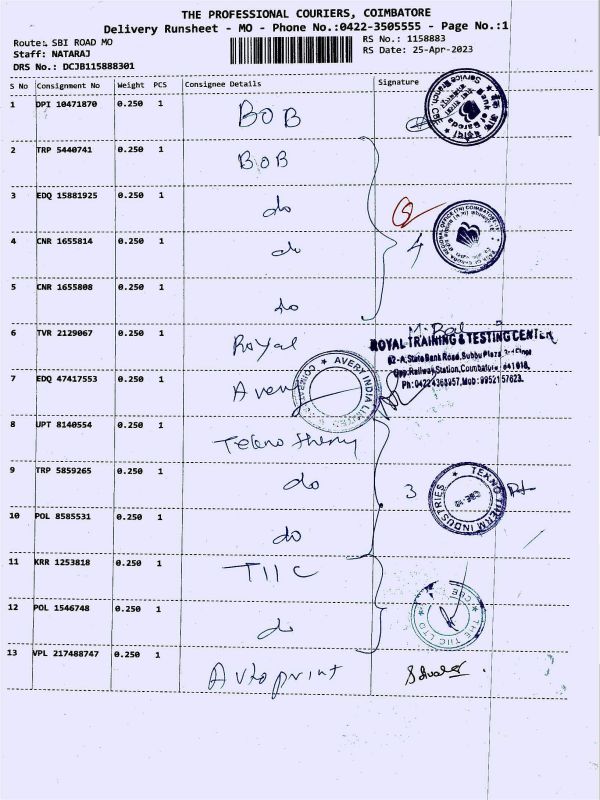 THE PROFESSIONAL COURIERS, COIMBATORE
Delivery Runsheet - MO - Phone No.:0422-3505555 - Page No.:1
Route: SBI ROAD MO
RS No.: 1158883
Staff: NATARAJ
RS Date: 25-Apr-2023
DRS No.: DCJB115888301
S No Consignment No Weight PCS Consignee Details Signature
1 DPI 10471870 0.250 1 BOB
2 TRP 5440741 0.250 1 BOB
3 EDQ 15881925 0.250 1 do
4 CNR 1655814 0.250 1 do 4
5 CNR 1655808 0.250 1 do
6 TVR 2129067 0.250 1 Royal
ROYAL TRAINING & TESTING CENTER
62-A, State Bank Road, Subbu Plaza, 3rd Floor
Opp. Railway Station, Coimbatore - 641018.
7 EDQ 47417553 0.250 1 Avery
AVERY INDIA LIMITED
8 UPT 8140554 0.250 1 Tekno therm
9 TRP 5859265 0.250 1 do 3
TEKNO THERM INDUSTRIES
10 POL 8585531 0.250 1 do
11 KRR 1253818 0.250 1 TIIC
12 POL 1546748 0.250 1 do
THE TIIC LTD
13 VPL 217488747 0.250 1 Autoprint